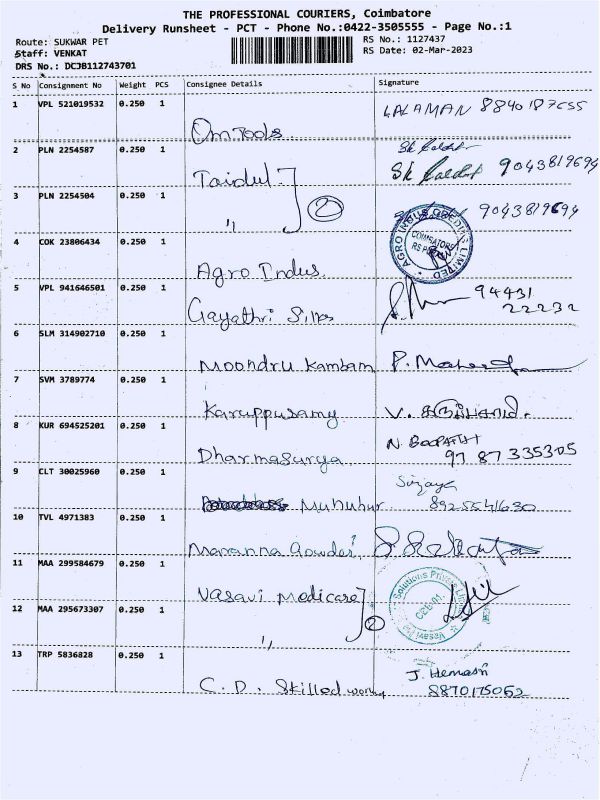 THE PROFESSIONAL COURIERS, Coimbatore
Delivery Runsheet - PCT - Phone No.:0422-3505555 - Page No.:1
Route: SUKWAR PET
Staff: VENKAT
DRS No.: DCJB112743701
RS No.: 1127437
RS Date: 02-Mar-2023
S No Consignment No Weight PCS Consignee Details Signature
1 VPL 521019532 0.250 1 Om Tools LALAMAN
2 PLN 2254587 0.250 1 Taidul 9043819694
3 PLN 2254504 0.250 1 " 2 9043819694
4 COK 23806434 0.250 1 Agro Indus. AGRO INDUS CREDITS LIMITED COIMBATORE
5 VPL 941646501 0.250 1 Gayathri Silks 94431
22232
6 SLM 314902710 0.250 1 Moondru Kambam
7 SVM 3789774 0.250 1 Karuppusamy V.
8 KUR 694525201 0.250 1 Dharmasurya N. BOOPATHI
97 87 335305
9 CLT 30025960 0.250 1 Muhuhur
8925541630
10 TVL 4971383 0.250 1 Maranna Gowder
11 MAA 299584679 0.250 1 Vasavi Medicare Solutions Private
12 MAA 295673307 0.250 1 " 2
13 TRP 5836828 0.250 1 C. D. Skilled J. Hemasri
8870175062